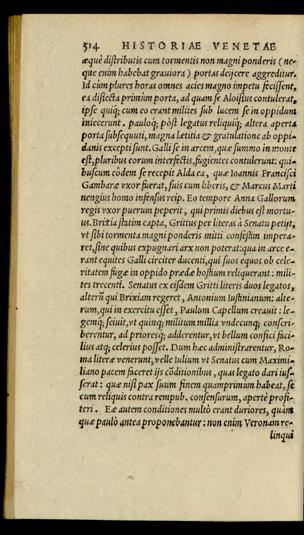 514 HISTORIAE VENETAE
æquè distributis cum tormentis non magni ponderis (ne-
que enim habebat grauiora) portas deijcere aggreditur.
Id cùm plures horas omnes acies magno impetu fecissent,
ea disiecta primùm porta, ad quam se Aloisius contulerat,
ipse quiq; cum eo erant milites sub lucem se in oppidum
iniecerunt. pauloq; pòst reliquiq; altera aperta
porta subsequuti, magna lætitia & gratulatione ab oppi-
danis excepti sunt. Galli se in arcem, quæ summo in monte
est, pluribus eorum interfectis, fugientes contulerunt: qui-
buscum eòdem se recepit Alda ea, quæ Ioannis Francisci
Gambaræ vxor fuerat, suis cum liberis, & Marcus Marti
nengius homo infensus reip. Eo tempore Anna Gallorum
regis vxor puerum peperit, qui primis diebus est mortu-
us. Brixia statim capta, Grittus per literas à Senatu petijt,
vt sibi tormenta magni ponderis mitti confestim impera-
ret, sine quibus expugnari arx non poterat: qua in arce e-
rant equites Galli circiter ducenti, qui suos equos ob cele-
ritatem fugæ in oppido prædæ hostium reliquerant: mili-
tes trecenti. Senatus ex eisdem Gritti literis duos legatos,
alterũ qui Brixiam regeret, Antonium Iustinianum: alte-
rum, qui in exercitu esset, Paulum Capellum creauit: le-
gemq; sciuit, vt quinq; militum millia vndecunq; conscri-
berentur, ad prioresq; adderentur, vt bellum confici faci-
lius atq; celerius posset. Dum hæc administrarentur, Ro-
ma literæ venerunt, velle Iulium vt Senatus cum Maximi-
liano pacem faceret ijs cõditionibus, quas legato dari ius-
serat: quæ nisi pax suum finem quamprimùm habeat, se
cum reliquis contra rempub. consensurum, apertè profi-
teri. Eæ autem conditiones multò erant duriores, quàm
quæ paulò antea proponebantur: non enim Veronam re-
linqui